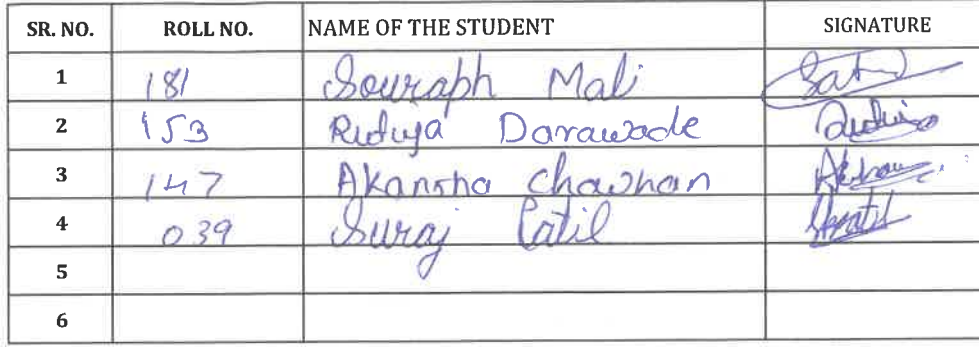 SR. NO. ROLL NO. NAME OF THE STUDENT SIGNATURE
1 181 Sourabh Mali
2 153 Rutuja Darawade
3 147 Akansha Chavhan
4 039 Suraj Patil
5
6